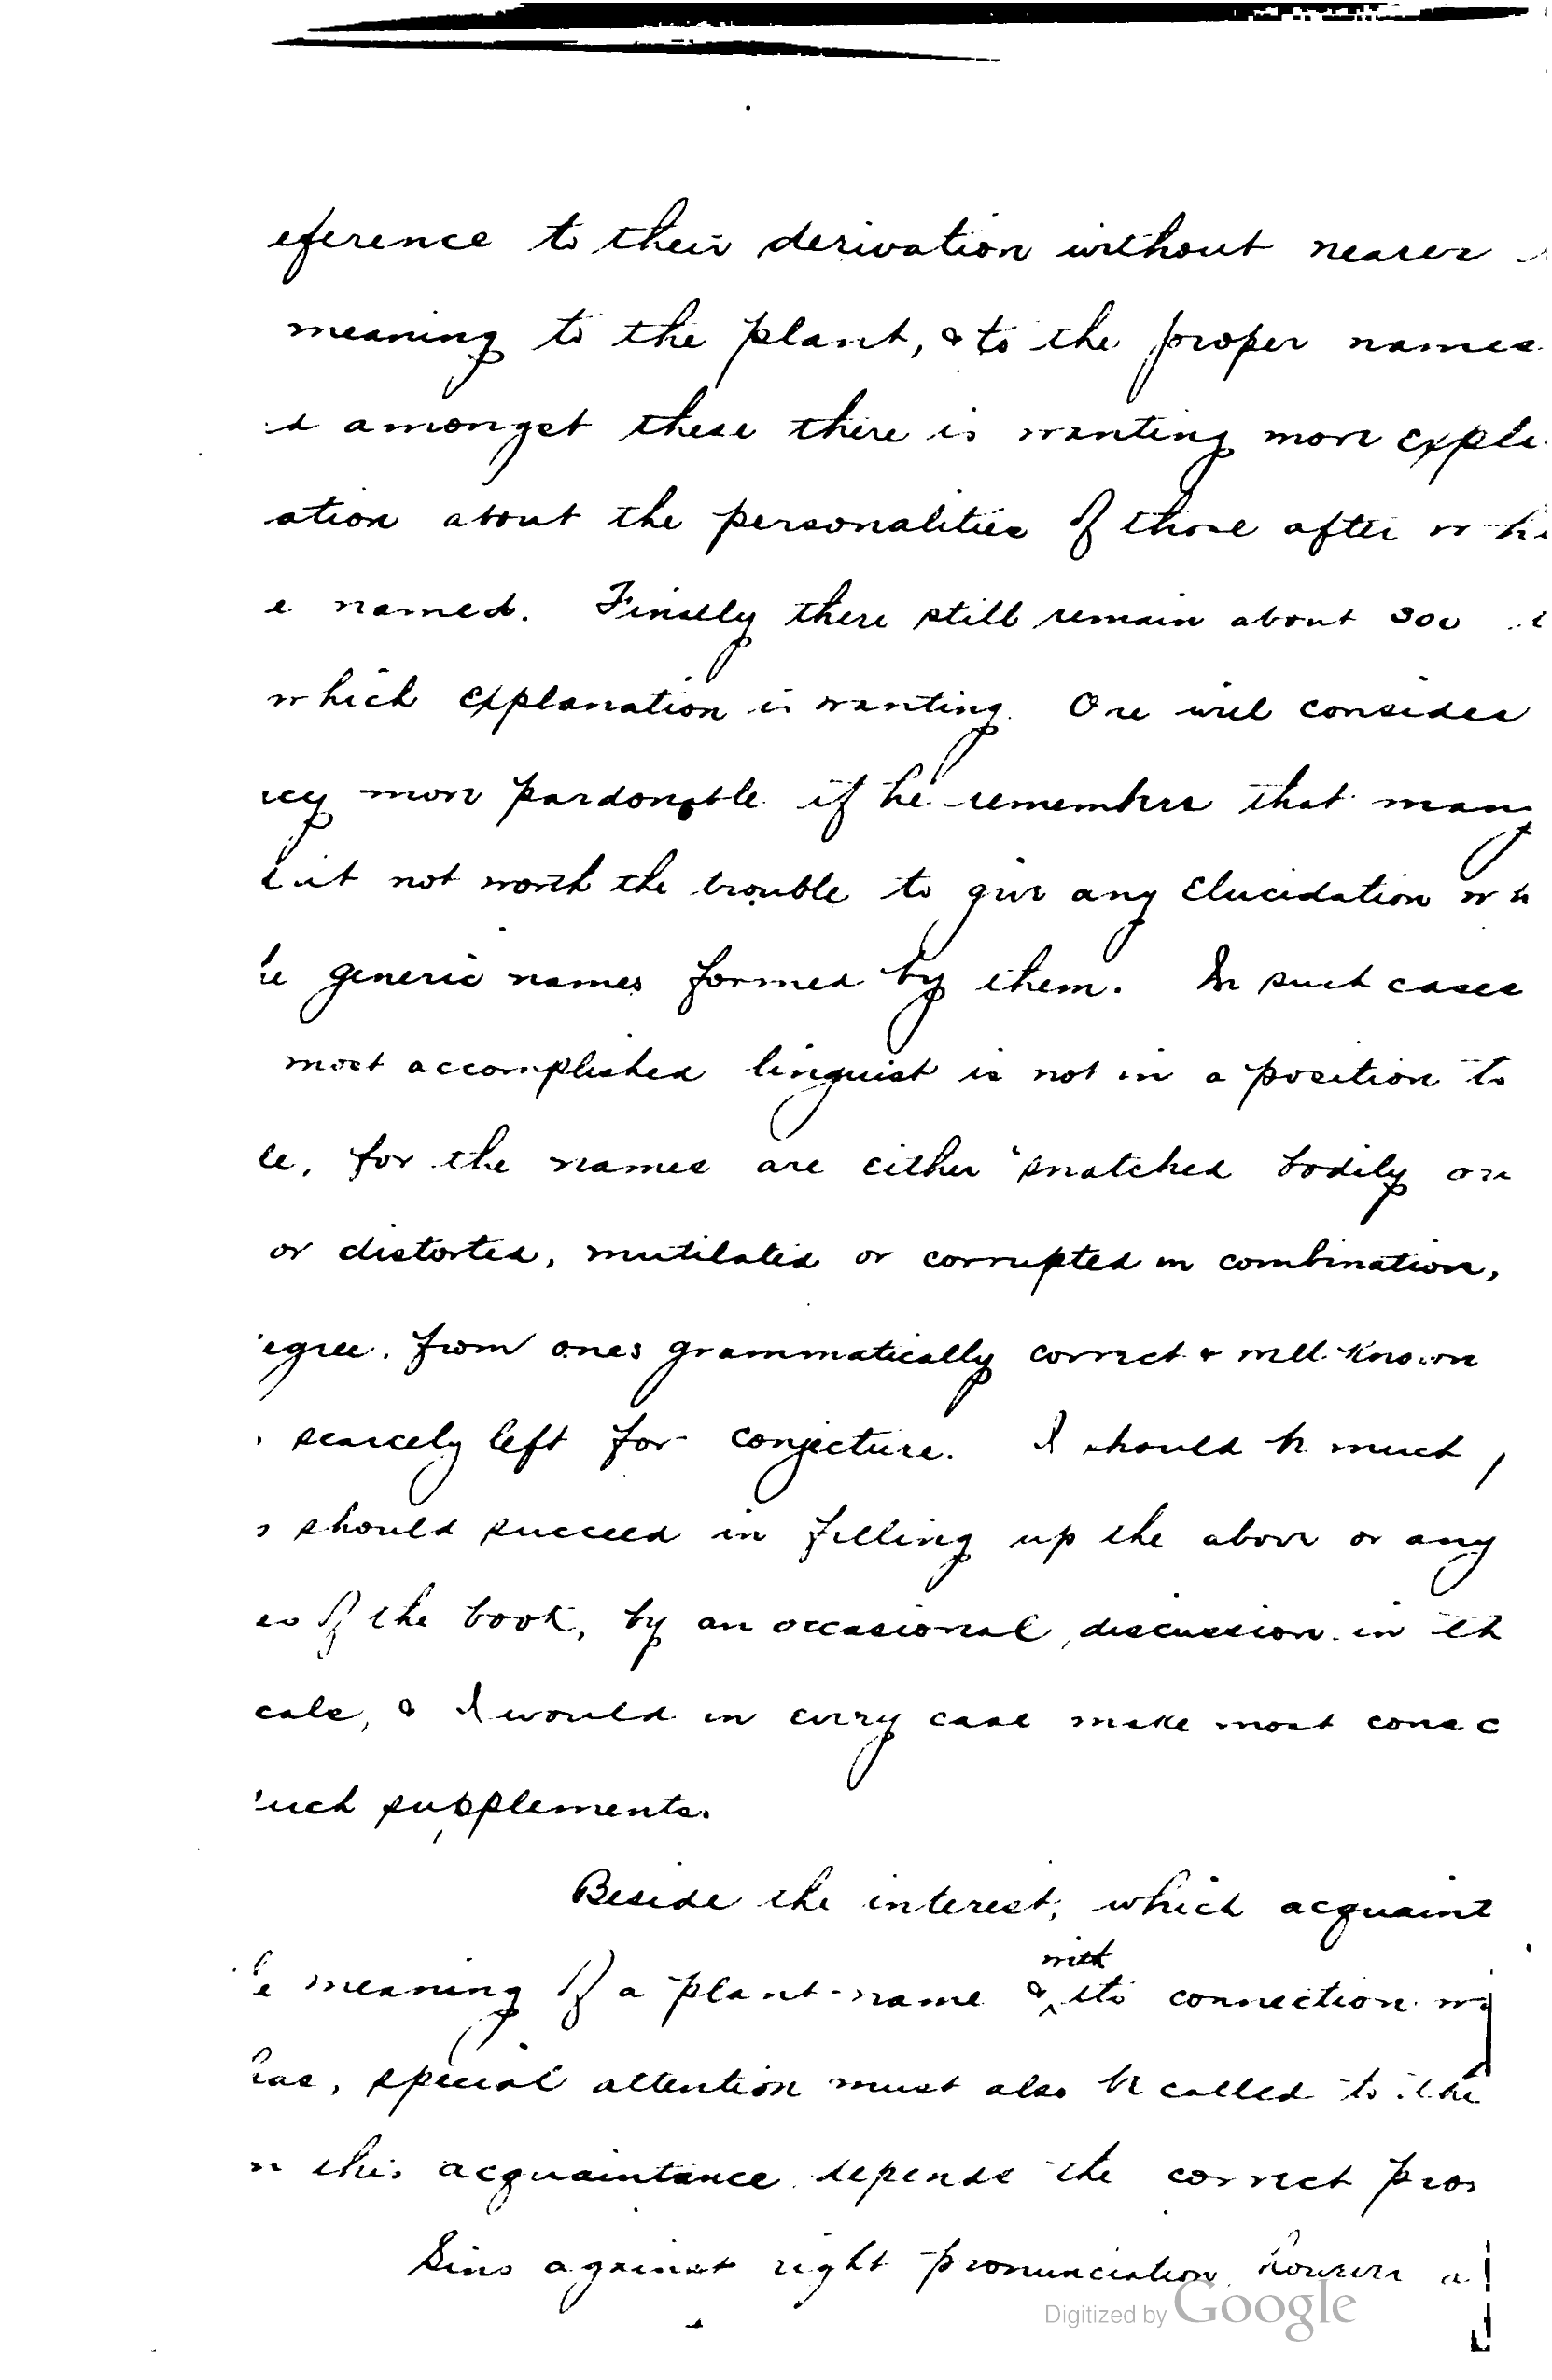 eference to their derivation without nearer
meaning to the plant, & to the proper names
d amongst these there is wanting more expla
ation about the personalities of those after wh
e named. Finally there still remain about 300
which explanation is wanting. One will consider
icy more pardonable if he remembers that many
it not worth the trouble to give any elucidation wh
he generic names formed by them. In such cases
most accomplished linguist is not in a position to
le, for the names are either snatched bodily
or distorted, mutilated or corrupted in combination,
egree, from ones grammatically correct & well known
scarcely left for conjecture. I should be much
should succeed in filling up the above or any
es of the book, by an occasional discussion in th
cals, & I would in every case make most consc
such supplements.
Beside the interest, which acquaint
with
e meaning of a plant-name & its connection wi
has, special attention must also be called to the
n this acquaintance depends the correct pron
Sins against right pronunciation however a
Digitized by Google